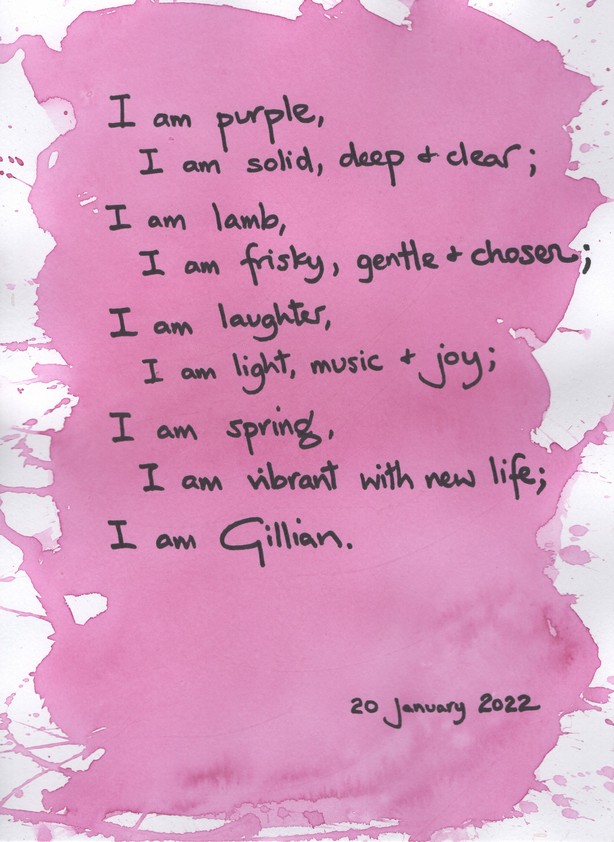 I am purple,
I am solid, deep + clear;
I am lamb,
I am frisky, gentle + chosen;
I am laughter,
I am light, music + joy;
I am spring,
I am vibrant with new life;
I am Gillian.
20 January 2022